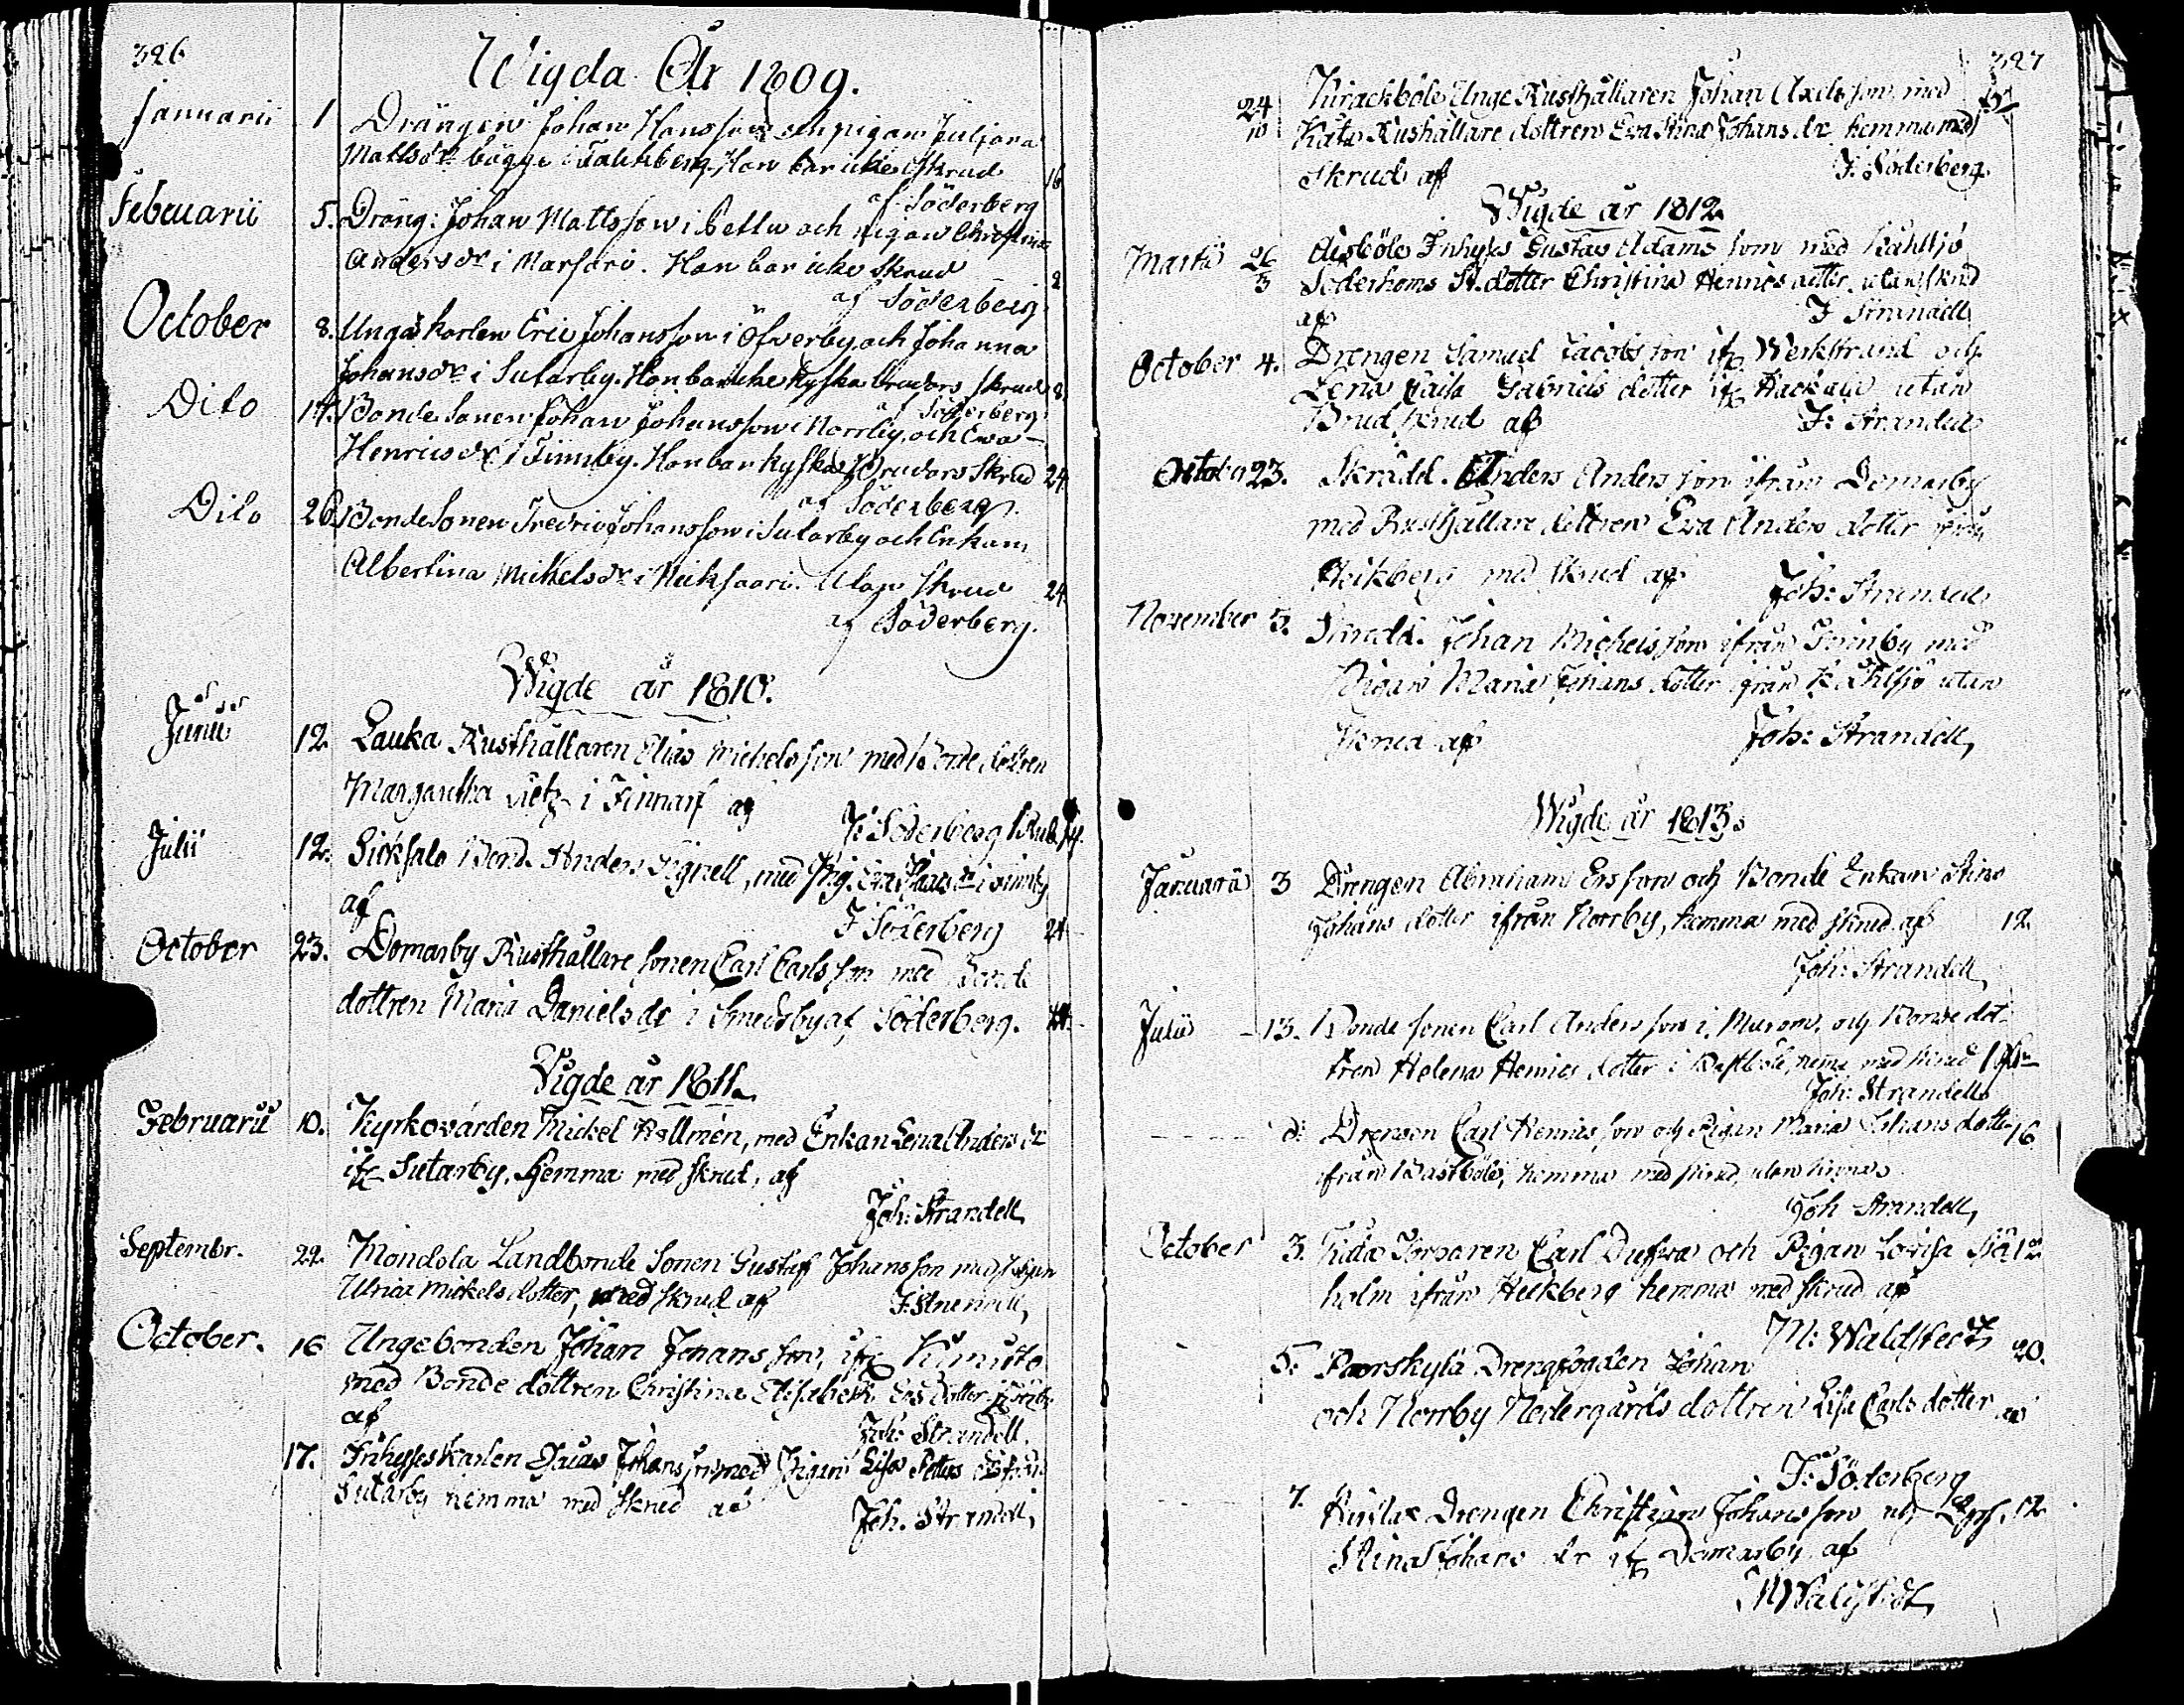 326
Wigda År 1809.
Januarii 1 Drängen Johan Hansson och pigan Juliana
Mattsdr bägge i Falckberg. Hon bar icke skrud 16
af Söderberg
Februarii 5. Dräng: Johan Mattsson i Bellu och pigan Christina
Andersdr i Marsari. Hon bar icke skrud 2
af Söderberg
October 8. Unga karlen Eric Johansson i Öfverby, och Johanna
Johansdr i Sutarby. Hon bar icke kyska brudars skrud 8.
af Söderberg
Dito 14. Bondesonen Johan Johansson i Norrby, och Eva
Henricsdr i Finnby. Hon bar kyska Brudars Skrud 24
af Söderberg.
Dito 26. Bondesonen Fredric Johansson i Sutarby och Enkan
Albertina Mickelsdr i Keiksaari. Utan skrud 24.
af Söderberg.
Wigde år 1810.
Junii 12. Lauka Rusthållaren Elias Michelsson med Bondedottren
Margaretha i Finnarf af
J: Söderberg
Julii 12. Sicksalo Bond. Anders Signell, med Pig. Eva i Finnby
af
J Söderberg 24
October 23. Domarby Rusthållare sonen Carl Carlsson med Bonde
dottren Maria Danielsdr i Smedsby af Söderberg. 24.
Vigde år 1811.
Februarii 10. Kyrkovärden Mickel Hallmén, med Enkan Lena Andersdr
ifr Sutarby. Hemma med skrud, af
Joh: Strandell
Septembr. 22. Mondola Landbonde Sonen Gustaf Johansson med pigan
Ulrica Mickels dotter, med skrud af
J. Strandell,
October. 16 Ungebonden Johan Johansson, ifr Kimito
med Bonde dottren Christina Elisabeth Ersdotter
af
Joh: Strandell.
17. Inhyseskarlen Johansson med Pigan Lisa ifrån
Sutarby hemma med skrud af
Joh. Strandell,
327
24
10 Kirackböle Unge Rusthållaren Johan Axelsson, med
Rusthållare dottren Eva Stina Johansdr hemma med
Skrud af
J. Söderberg.
Wigde år 1812.
Martii 26
3 Inhyses Gustav Adamsson med Kahlsjö
Söderholms dotter Christina Henrics dotter, utan skrud
af
J Strandell
October 4. Drengen Samuel Jacobsson ifr Werkstrand och
Lena Caisa Gabriels dotter ifr utan
Brud skrud af
J: Strandell
October 23. Skrädd. Anders Andersson ifrån Domarby
med Rusthållare dottren Eva Anders dotter ifrån
Heikberg med skrud af
Joh: Strandell
November 5. Skrädd. Johan Michelsson ifrån Finnby med
Pigan Maria Johans dotter ifrån Kahlsjö utan
skrud af
Joh: Strandell,
Wigde år 1813.
Januarii 3 Drengen Abraham Ersson och Bonde Enkan Stina
Johans dotter ifrån Norrby, hemma med skrud af 12.
Joh: Strandell
Julii 13. Bonde sonen Carl Andersson i, och Bonde dot-
tren Helena Henrics dotter i Bastböle, hemma med skrud
Joh: Strandell
d: Drengen Carl Henricsson och Pigan Maria Johans dotter 16
ifrån Bastböle, hemma med skrud, utan
Joh Strandell,
October 3. Carl Duffva och Pigan Lovisa
holm ifrån Heikberg hemma med skrud af
M: Waldstedt
5. Paorskylä Drengfogden Johan 20.
och Norrby Nedergårds dottren Lisa Carls dotter af
J: Söderberg
7. Drengen Christian Johansson och 12
Stina Johans dr ifr Domarby af
M Waldstedt,